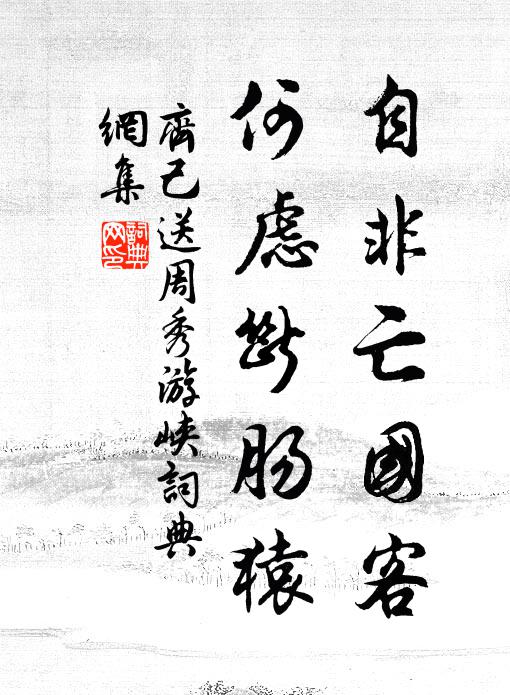 自非亡國客
何慮斷腸猿
齊己送周秀游峽詞典
網集
詞典
网印